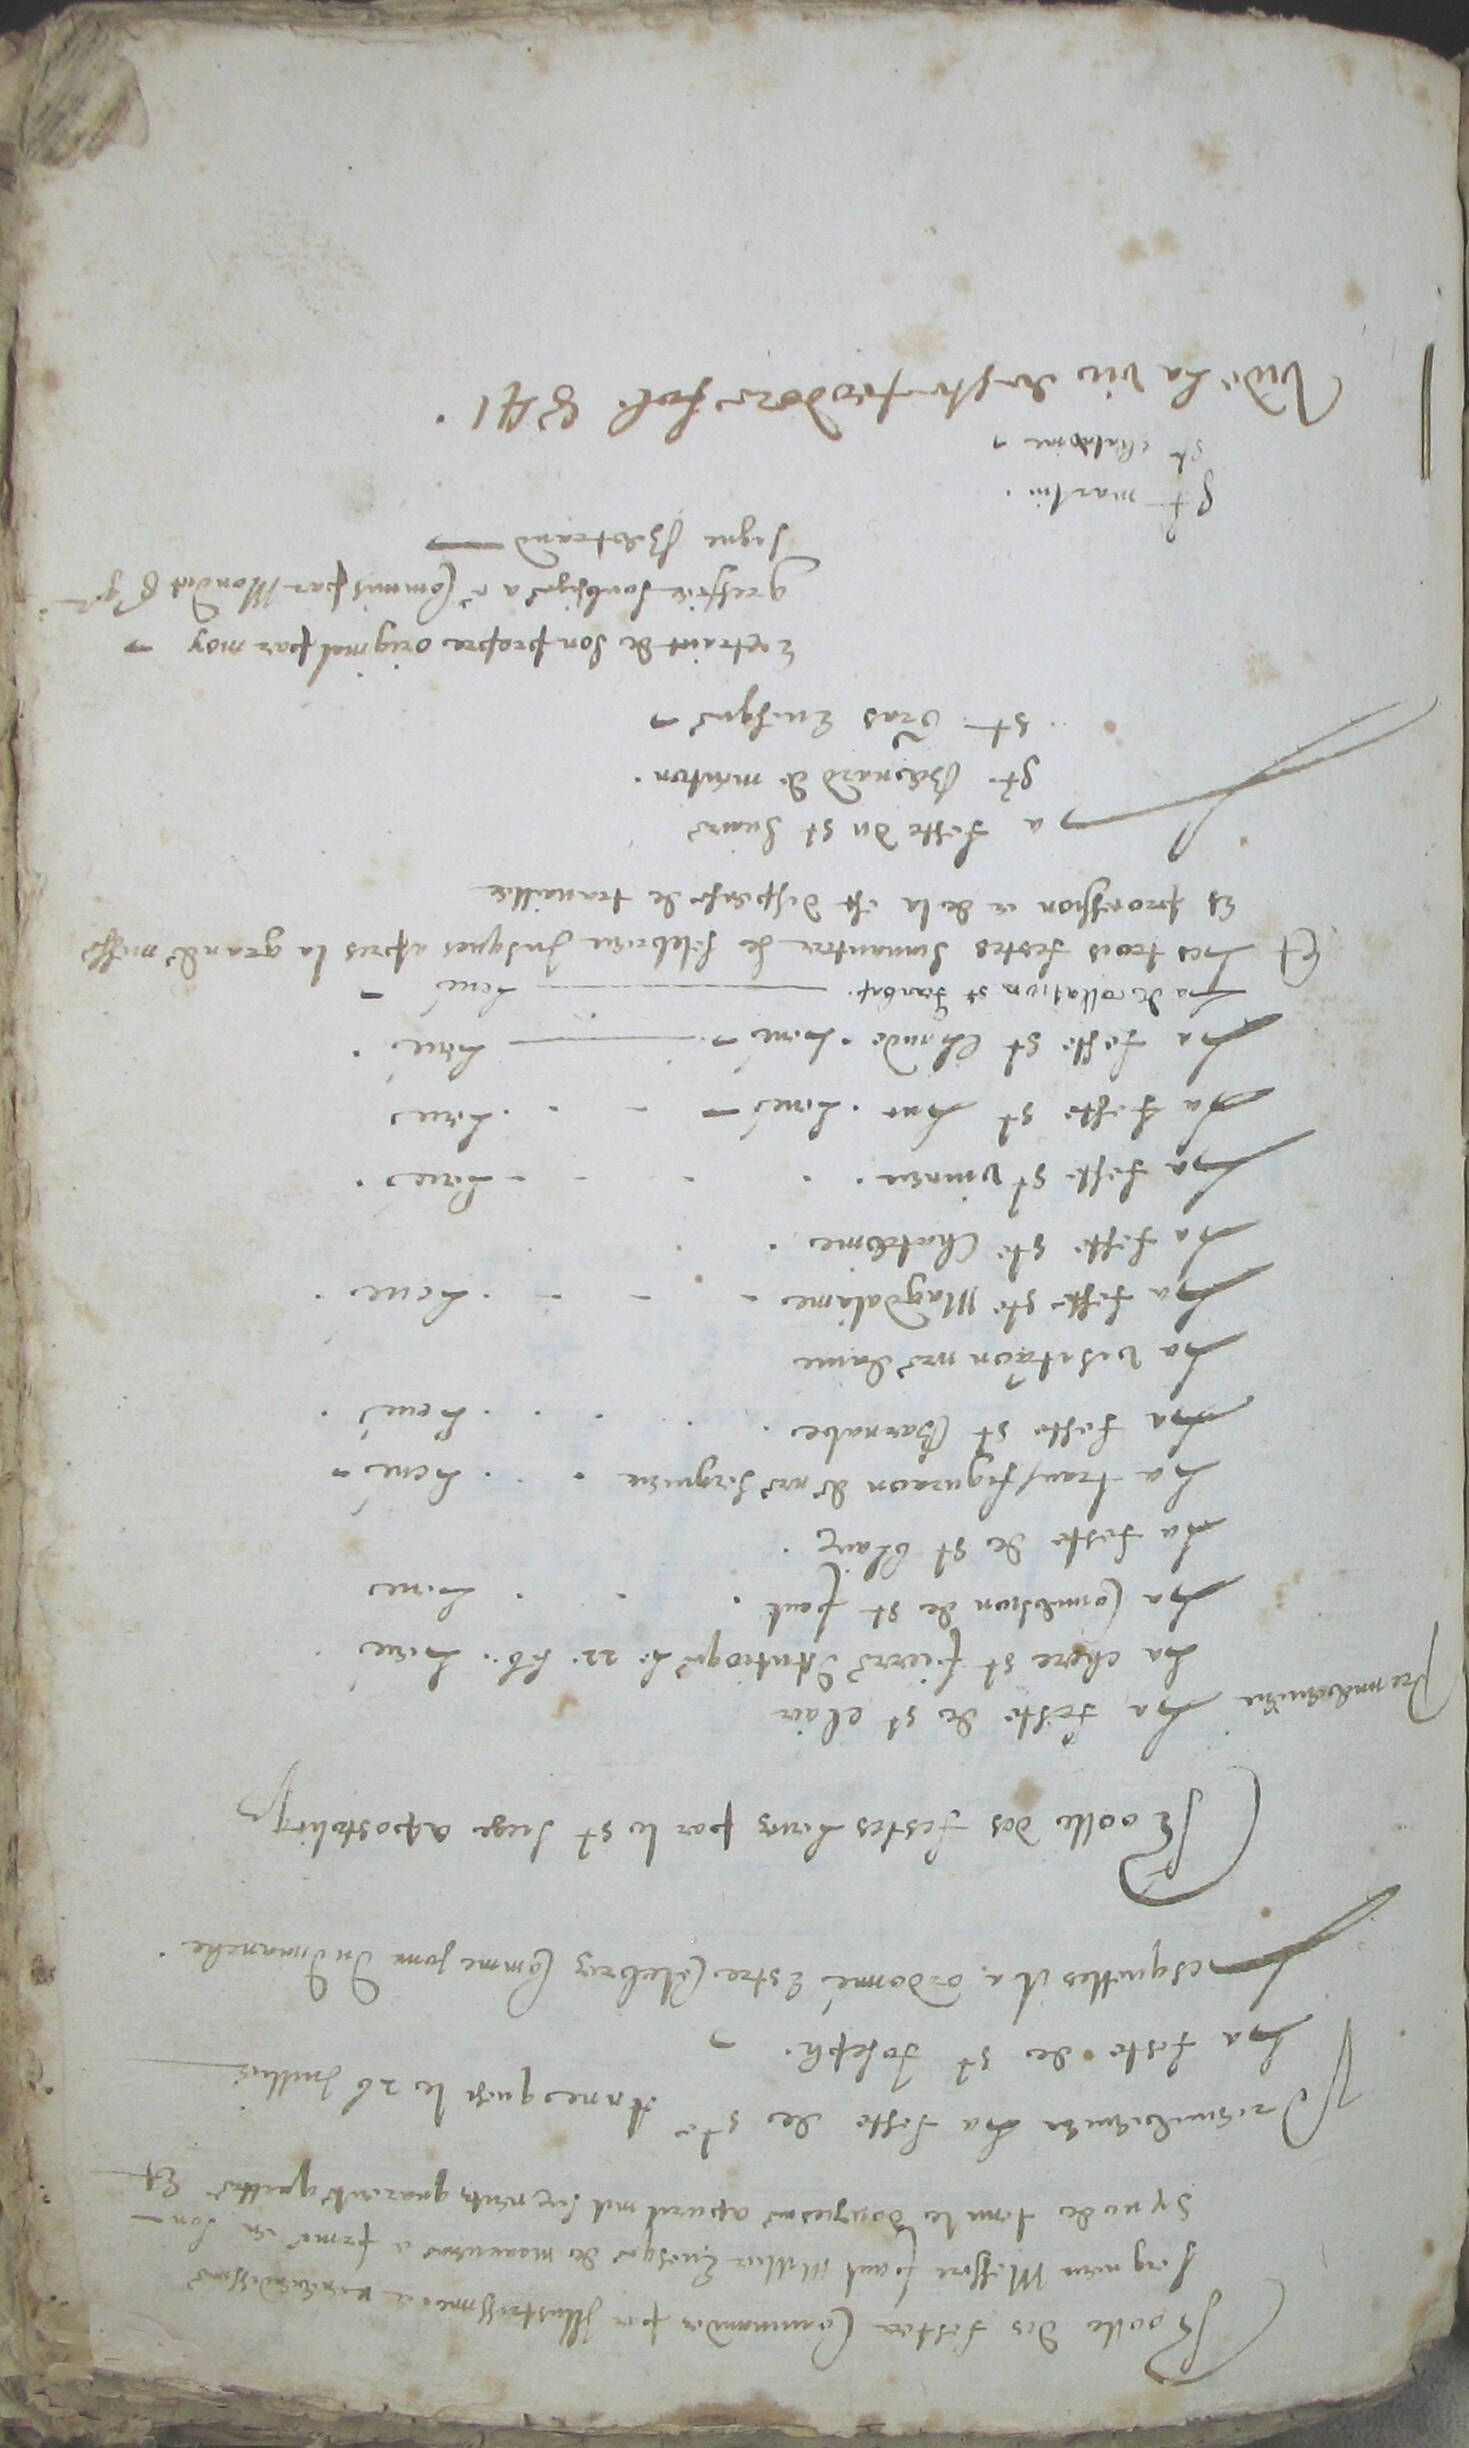 Roolle des festes Commandes par Illustrissime et reverendissime
seigneur Messire paul Millier Evesque de maurienne a tenu en son
Synode tenu le douziesme apvril mil six cents quarante quattre Et
Premierement La feste de ste Anne quest le 26 Juillet
La feste de st Joseph.
Lesquelles il a ordonné Estre Celebres Comme jour du dimanche.
Roolle des festes leves par le st siege apostolique
Premierement La feste de st clair
La chere st pierre d'Antioque le 22. feb. Leuee
La Conversion de st paul . . . Leuee
La feste de st Blaise .
La transfiguraon de nre seigneur . . . Leuee
La feste st Barnabe . . . . Leuee .
La visitaon nre dame
La feste ste Magdaleine . . . Leuee .
La feste ste Chaterine .
La feste st vincen . . . . Leuee .
La feste st Luc . Leuee . . Leuee
La feste st Claude . Leuee Leuee .
La decollation st Jean bapt. Leuee
Et Les trois festes suivantes se selebrent Jusques apres la grande messe
Et procession et de la est dispense de travailler
La feste du st suaire
st Bernard de menton .
st Gras Evesque
Extraict de son propre original par moy
greffier soubsigné a ce Commis par Mondit sgr
signe Bertrand
st martin .
st Anthoine
Vide La vie de ste teodore fol. 841 .